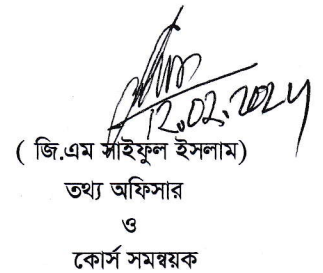 12.02.2024
( জি.এম সাইফুল ইসলাম)
তথ্য অফিসার
ও
কোর্স সমন্বয়ক